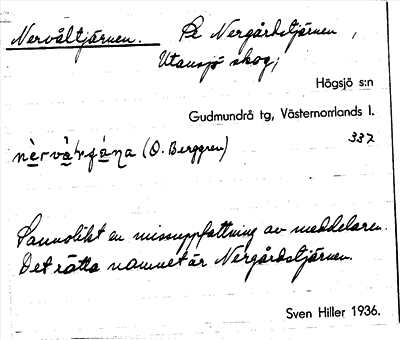 Nervåltjärnen. Se Nergårdstjärnen,
Utansjö skog;
Högsjö s:n
Gudmundrå tg, Västernorrlands l.
337
(O. Berggren)
Sannolikt en missuppfattning av meddelaren.
Det rätta namnet är Nergårdstjärnen.
Sven Hiller 1936.